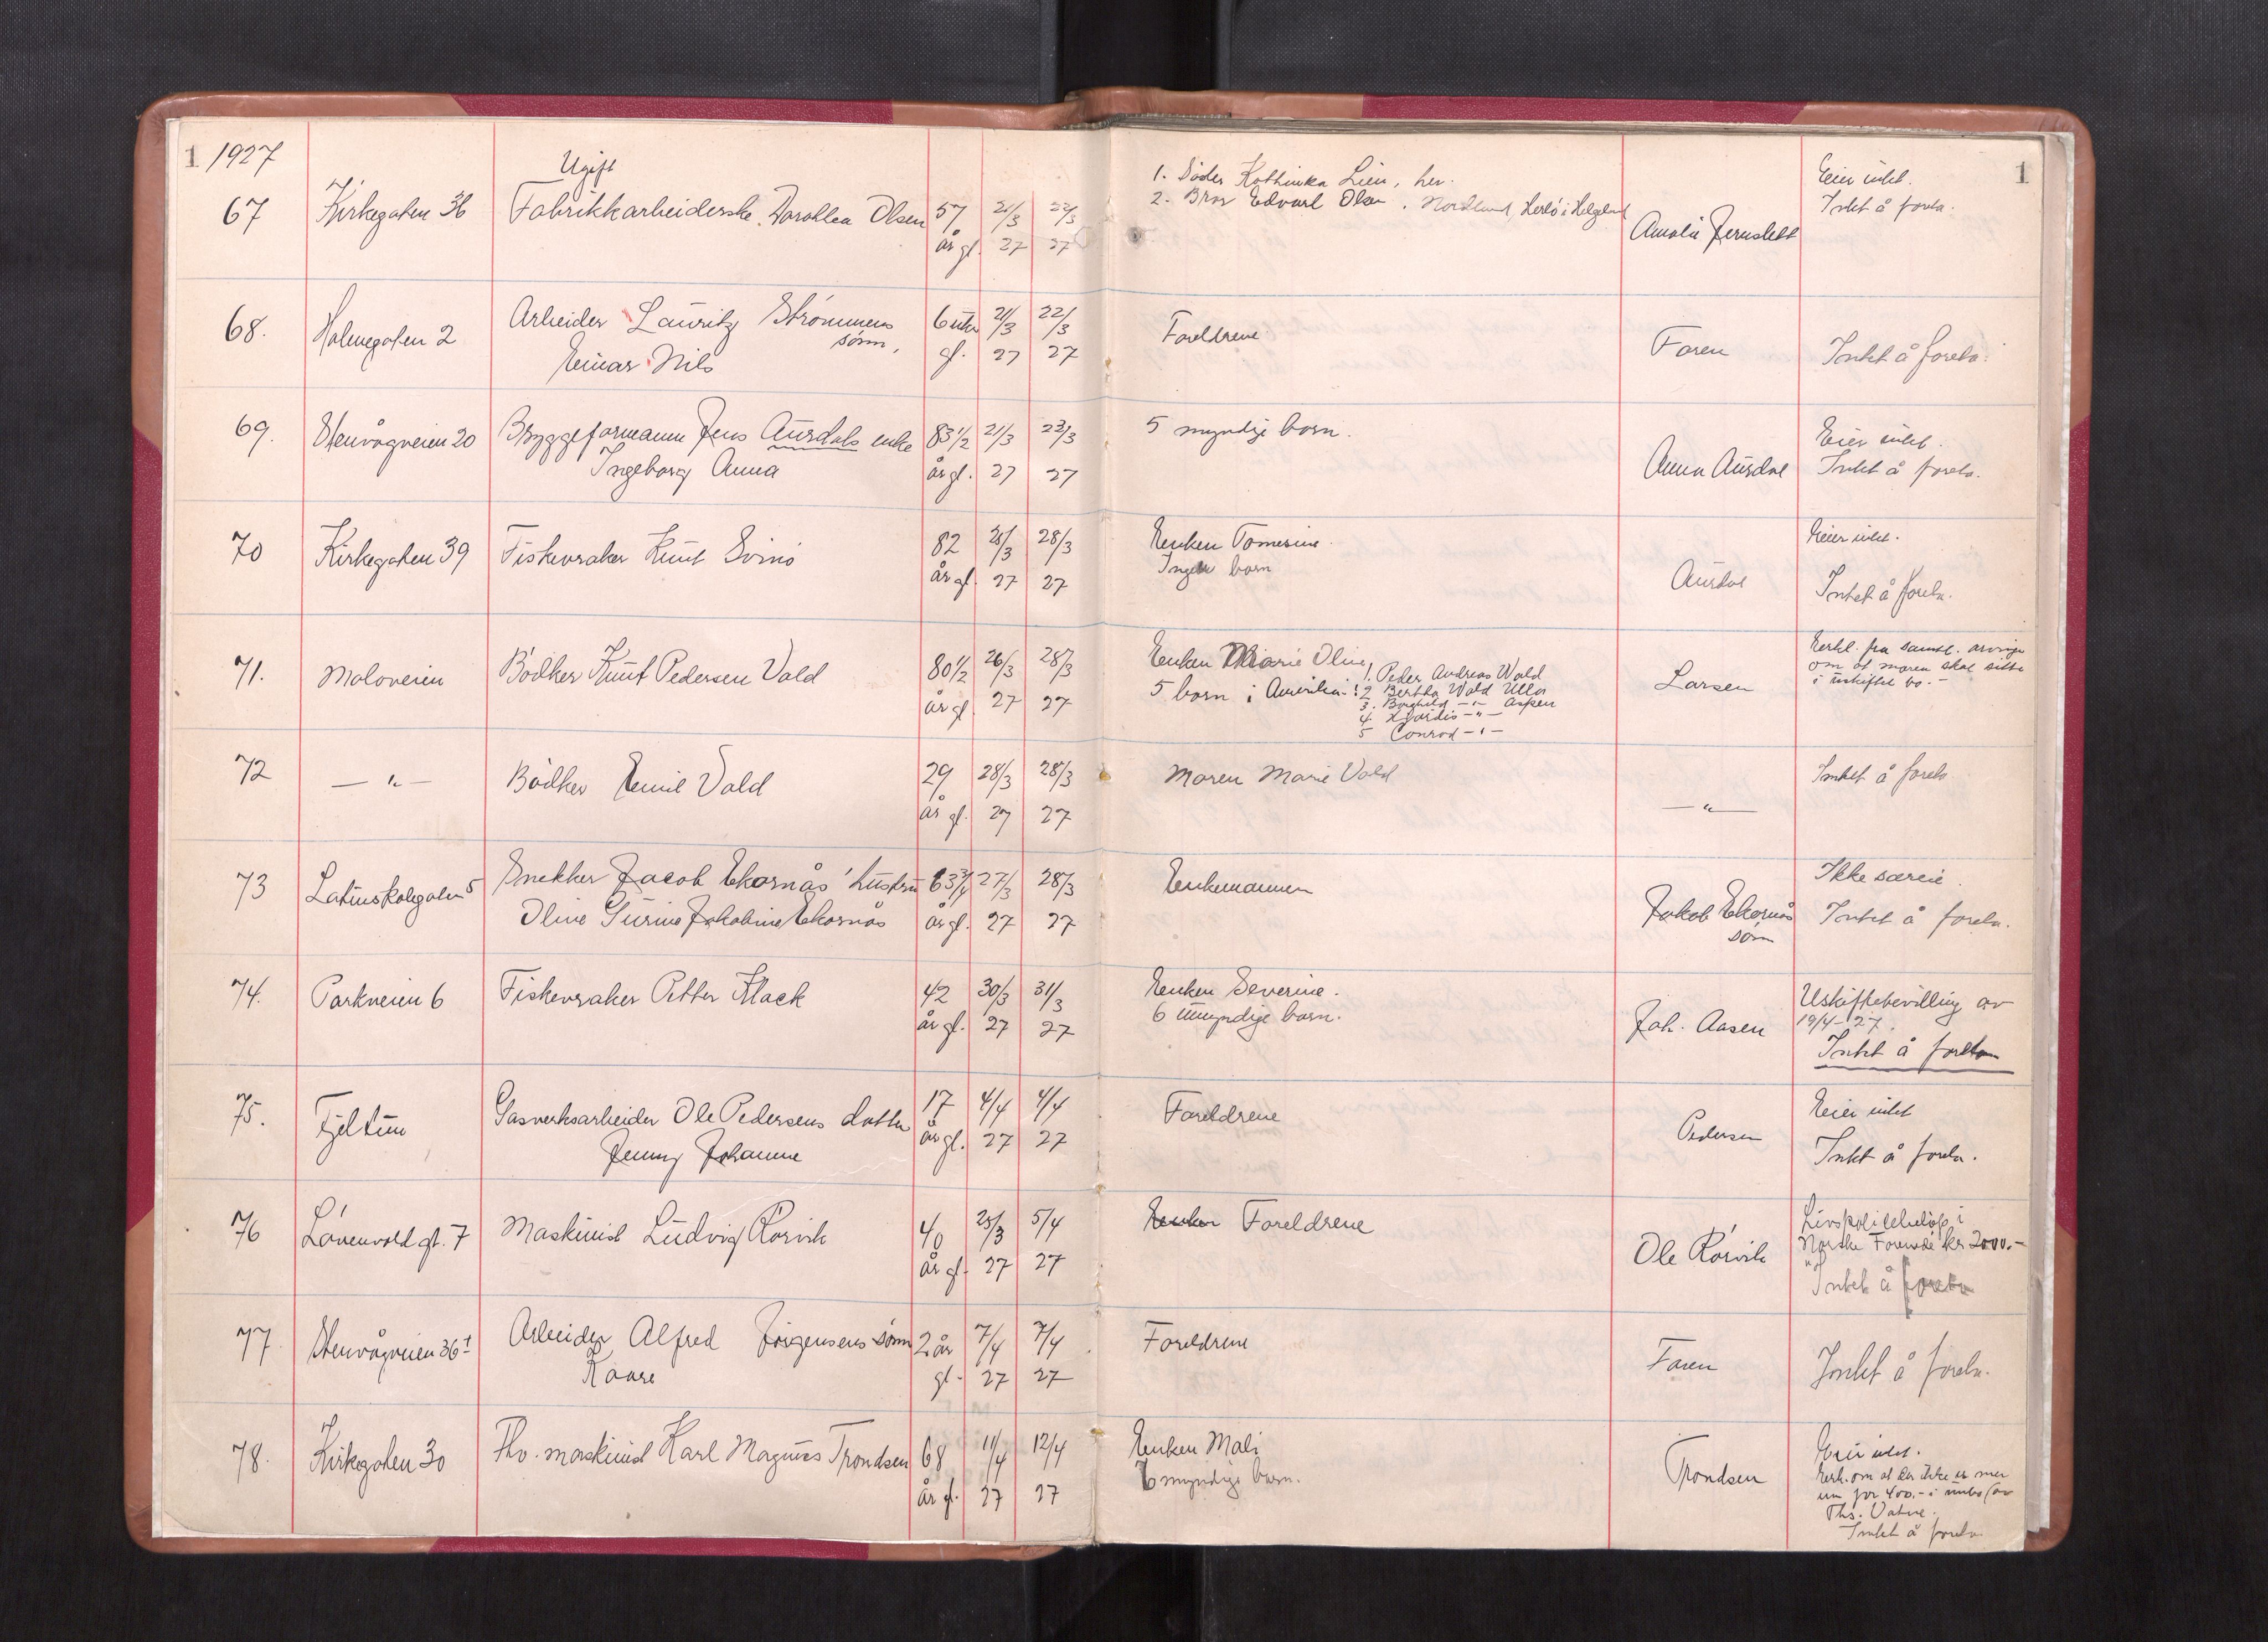 1 1927
1
67 Kirkegaten 36
Ugift
Fabrikkarbeiderske Dorothea Olsen
57 år gl. 21/3 27 22/3 27
1. Søster Kathinka Lien, her.
2. Bror Edvart Olsen, Nordland, Herlø i Helgeland
Amalie Jernslett
Eier intet.
Intet å foreta.
68. Holmegaten 2
Arbeider Lauritz Strømmens sønn,
Einar Nils
6 uker gl. 21/3 27 22/3 27
Foreldrene
Faren
Intet å foreta.
69. Stenvågveien 20
Bryggeformann Jens Aursdals enke
Ingeborg Anna
83 1/2 år gl. 21/3 27 23/3 27
5 myndige barn.
Anna Aursdal
Eier intet.
Intet å foreta.
70 Kirkegaten 39
Fiskevraker Knut Svinø
82 år gl. 27 28/3 27
Enken Tomesine.
Ingen barn
Aursdal
Eier intet.
Intet å foreta.
71. Moloveien
Bødker Knut Pedersen Vald
80 1/2 år gl. 26/3 27 28/3 27
Enken Marie Oline
5 barn i Amerika: 1. Peder Andreas Wald
2 Bertha Wald Ulla
3. Borghild -"- Aspen
4. Hjørdis -"-
5 Conrod -"-
Larsen
Erkl. fra samtl. arvinger
om at moren skal sitte
i uskiftet bo. -
72 — " —
Bødker Emil Vald
29 år gl. 28/3 27 28/3 27
Maren Marie Vald
— " —
Intet å foreta
73 Latinskolegaten 5
Snekker Jacob Ekornås' hustru
Oline Gurine Jakobine Ekornås
63 3/4 år gl. 27/3 27 28/3 27
Enkemannen
Jakob Ekornås
sønn
Ikke særeie.
Intet å foreta.
74. Parkveien 6
Fiskevraker Petter Flack
42 år gl. 30/3 27 31/3 27
Enken Severine.
6 umyndige barn.
Joh. Aasen
Uskiftebevilling av
19/4-27.
Intet å foreta
75. Fjeltun
Gasverksarbeider Ole Pedersens datter
Jenny Johanne
17 år gl. 4/4 27 4/4 27
Foreldrene
Pedersen
Eier intet
Intet å foreta.
76 Løvenvold gt. 7
Maskinist Ludvig Rørvik
40 år gl. 25/3 27 5/4 27
Enken Foreldrene
Ole Rørvik
Livspolicebeløp i
Norske Forenede kr 2000.-
Intet å foreta
77 Stenvågveien 36 I
Arbeider Alfred Jørgensens sønn
Kaare
2 år gl. 7/4 27 7/4 27
Foreldrene
Faren
Intet å foreta.
78. Kirkegaten 30
Fhv. maskinist Karl Magnus Trondsen
68 år gl. 11/4 27 12/4 27
Enken Mali
6 myndige barn.
Trondsen
Eier intet.
Erk. om at der ikke er mer
enn for 400.- i innbo (av
Ths. Vatne.
Intet å foreta